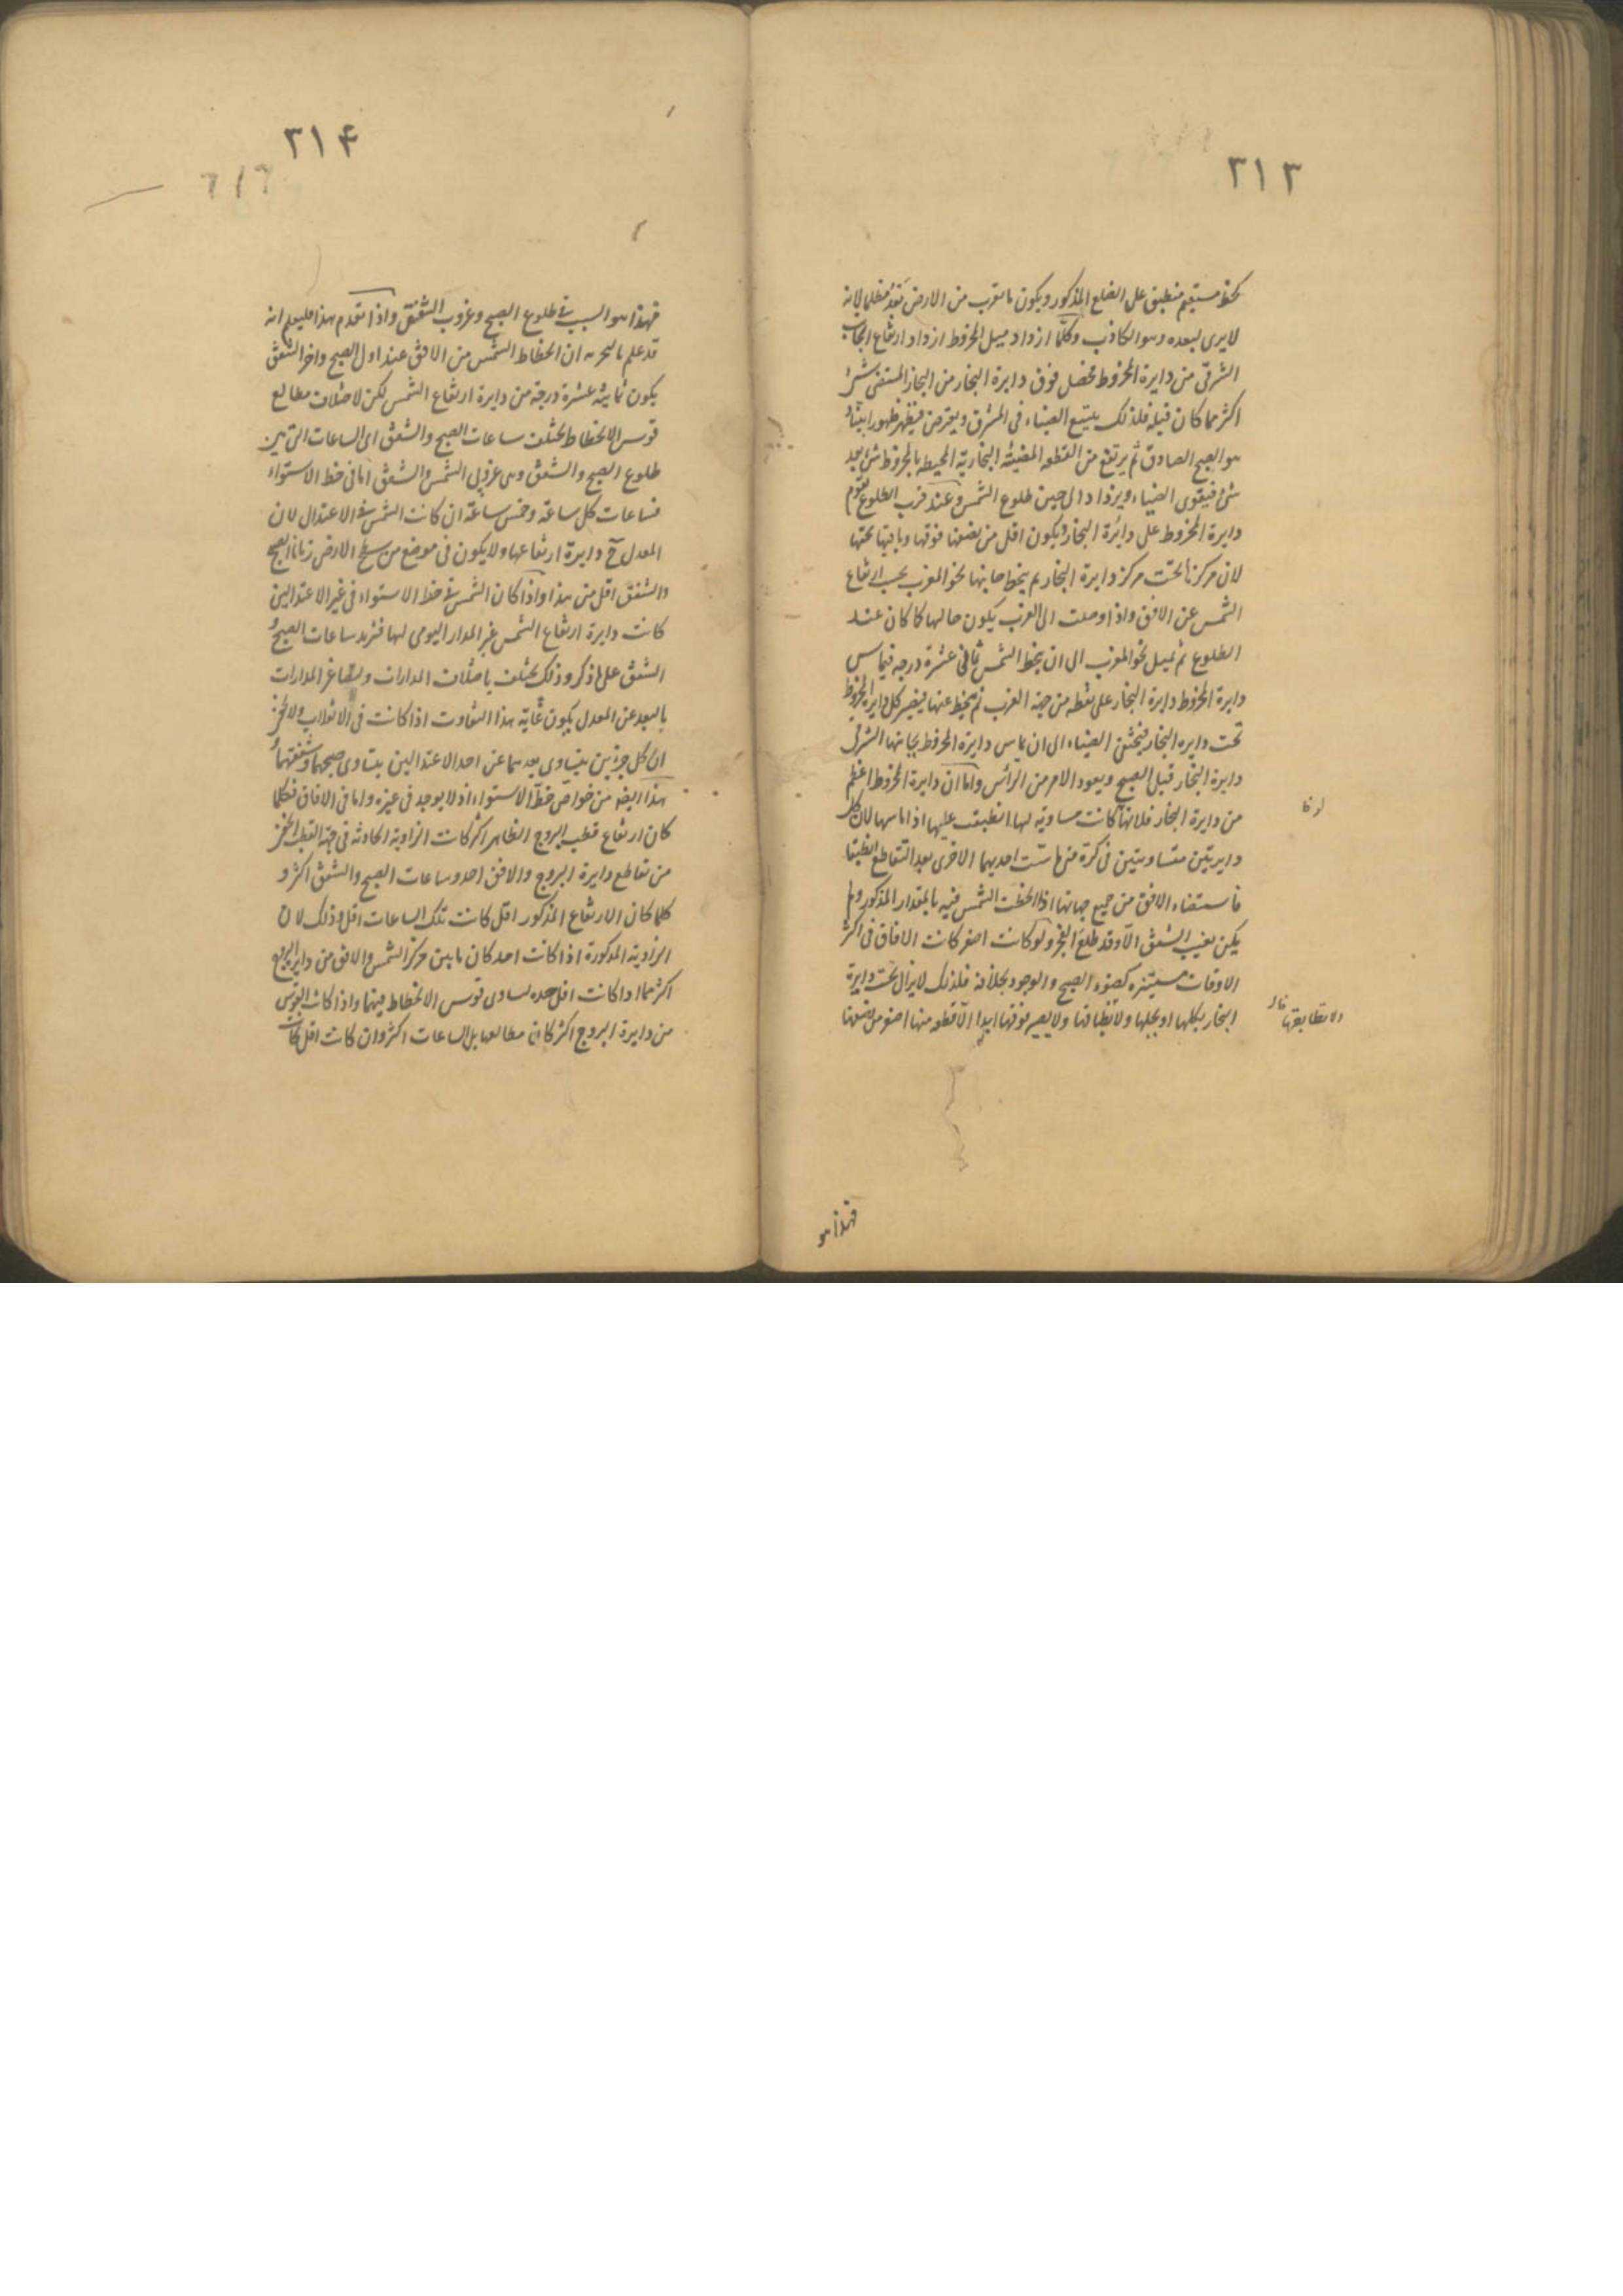 ٣١٣
كخط مستقيم منطبق على الضلع المذكور ويكون ما يقرب من الارض بعد مظلما لانه
لا يرى لبعده وهو الكاذب وكلما ازداد ميل المخروط ازداد ارتفاع الجانب
الشرقى من دايرة المخروط فحصل فوق دايرة البخار من البخار المستضى شئ
اكثر مما كان قبله فلذلك يتسع الضياء فى المشرق ويعترض فيظهر ظهورا بينا و
هو الصبح الصادق ثم يرتفع من القطعه المضيئة البخارية المحيطه بالمخروط شئ بعد
شئ فيقوى الضياء ويزداد الى حين طلوع الشمس وعند قرب الطلوع تقوم
دايرة المخروط على دايرة البخار ويكون اقل من نصفها فوقها وباقيها تحتها
لان مركزها تحت مركز دايرة البخار ثم ينحط جانبها نحو المغرب بحسب ارتفاع
الشمس عن الافق واذا وصلت الى الغرب يكون حالها كما كان عند
الطلوع ثم تميل نحو المغرب الى ان ينحط الشمس ثمانى عشرة درجه فيماس
دايرة المخروط دايرة البخار على نقطه من جهة الغرب ثم ينحط عنها فيصير كل دايرة المخروط
تحت دايره البخار فيختفى الضياء الى ان يماس دايرة المخروط بجانبها الشرقى
دايرة البخار قبيل الصبح ويعود الامر من الرأس واما ان دايرة المخروط اعظم
من دايرة البخار فلانها لو كانت مساوية لها انطبقت عليها اذا ماسها لان كل
دايرتين متساويتين فى كرة متى ماست احديهما الاخرى بعد التقاطع انطبقا
فاستضاء الافق من جميع جهاتها اذا انحطت الشمس فيه بالمقدار المذكور ولم
يكن يغيب الشفق الا وقد طلع الفجر ولو كانت اصغر كانت الافاق فى اكثر
الاوقات مستنيره كضوء الصبح والوجود بخلافه فلذلك لا يزال تحت دايرة
البخار بكلها او بجلها ولا يصير فوقها ابدا الا قطعه منها اصغر من نصفها
فهذا هو
٣١۴
فهذا هو السبب فى طلوع الصبح وغروب الشفق واذا تقدم هذا فليعلم انه
قد علم بالتجربه ان انحطاط الشمس من الافق عند اول الصبح واخر الشفق
يكون ثمانية عشرة درجة من دايرة ارتفاع الشمس لكن لاختلاف مطالع
قوس الانحطاط يختلف ساعات الصبح والشفق اى الساعات التى بين
طلوع الصبح والشمس وبين غروبى الشمس والشفق اما فى خط الاستواء
فساعات كل ساعة وخمس ساعة ان كانت الشمس فى الاعتدال لان
المعدل ح دايرة ارتفاعها ولا يكون فى موضع من سطح الارض زمانا الصبح
والشفق اقل من هذا واذا كان الشمس فى خط الاستواء فى غير الاعتدالين
كانت دايرة ارتفاع الشمس غير المدار اليومى لها فتزيد ساعات الصبح و
الشفق على ما ذكر وذلك يختلف باختلاف المدارات ولتصاغر المدارات
بالبعد عن المعدل يكون غاية هذا التفاوت اذا كانت فى الانقلاب
ان كل جزئين يتساوى بعدهما عن احد الاعتدالين يتساوى صبحهما وشفقهما و
هذا ايضه من خواص خط الاستواء اذ لا يوجد فى غيره واما فى الافاق فكلما
كان ارتفاع قطب البروج الظاهر اكثر كانت الزاوية الحادثه فى جهة القطب الخفى
من تقاطع دايرة البروج والافق احد وساعات الصبح والشفق اكثر و
كلما كان الارتفاع المذكور اقل كانت تلك الساعات اقل وذلك لان
الزاوية المذكورة اذا كانت احد كان ما بين مركز الشمس والافق من داير البروج
اكثر مما اذا كانت اقل حده لتساوى قوس الانحطاط فيهما واذا كانت القوس
من دايرة البروج اكثر كان مطالعها بل الساعات اكثر وان كانت اقل كانت